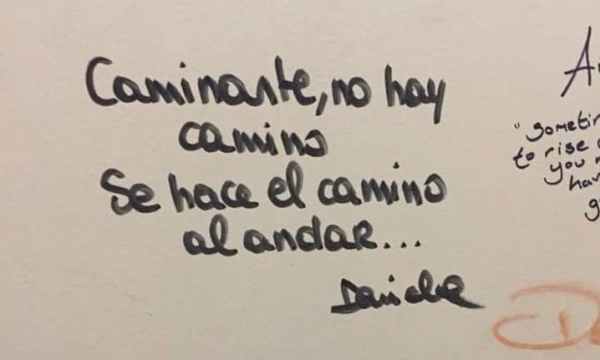 Caminante, no hay
camino
Se hace el camino
al andar...
"Someti
to rise
you
hav
g